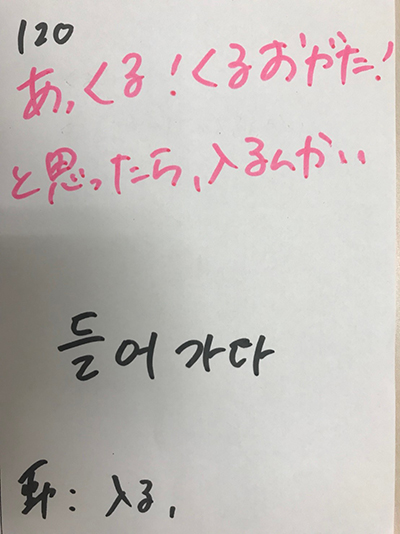 120
あ、くる!くるおがた!
と思ったら、入るんかい
들어가다
動: 入る,